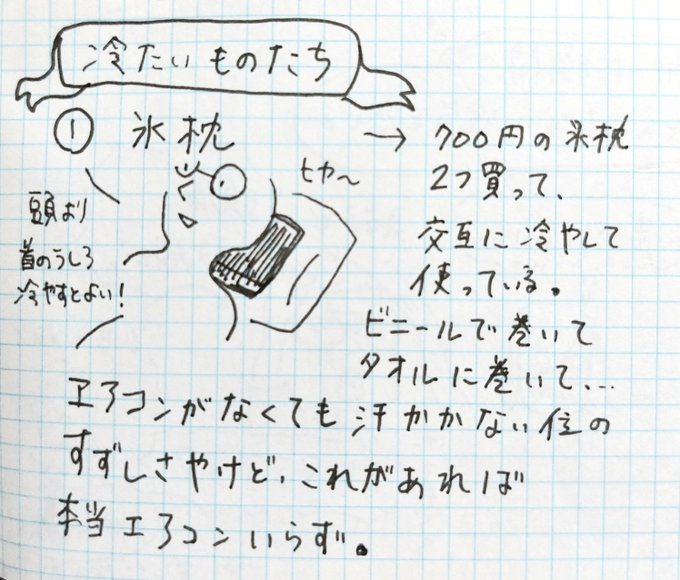 冷たいものたち
① 氷枕
→ 700円の氷枕
2つ買って、
交互に冷やして
使っている。
ビニールで巻いて
タオルに巻いて、…
頭より
首のうしろ
冷やすとよい!
ヒヤ〜
エアコンがなくても汗かかない位の
すずしさやけど、これがあれば
本当エアコンいらず。